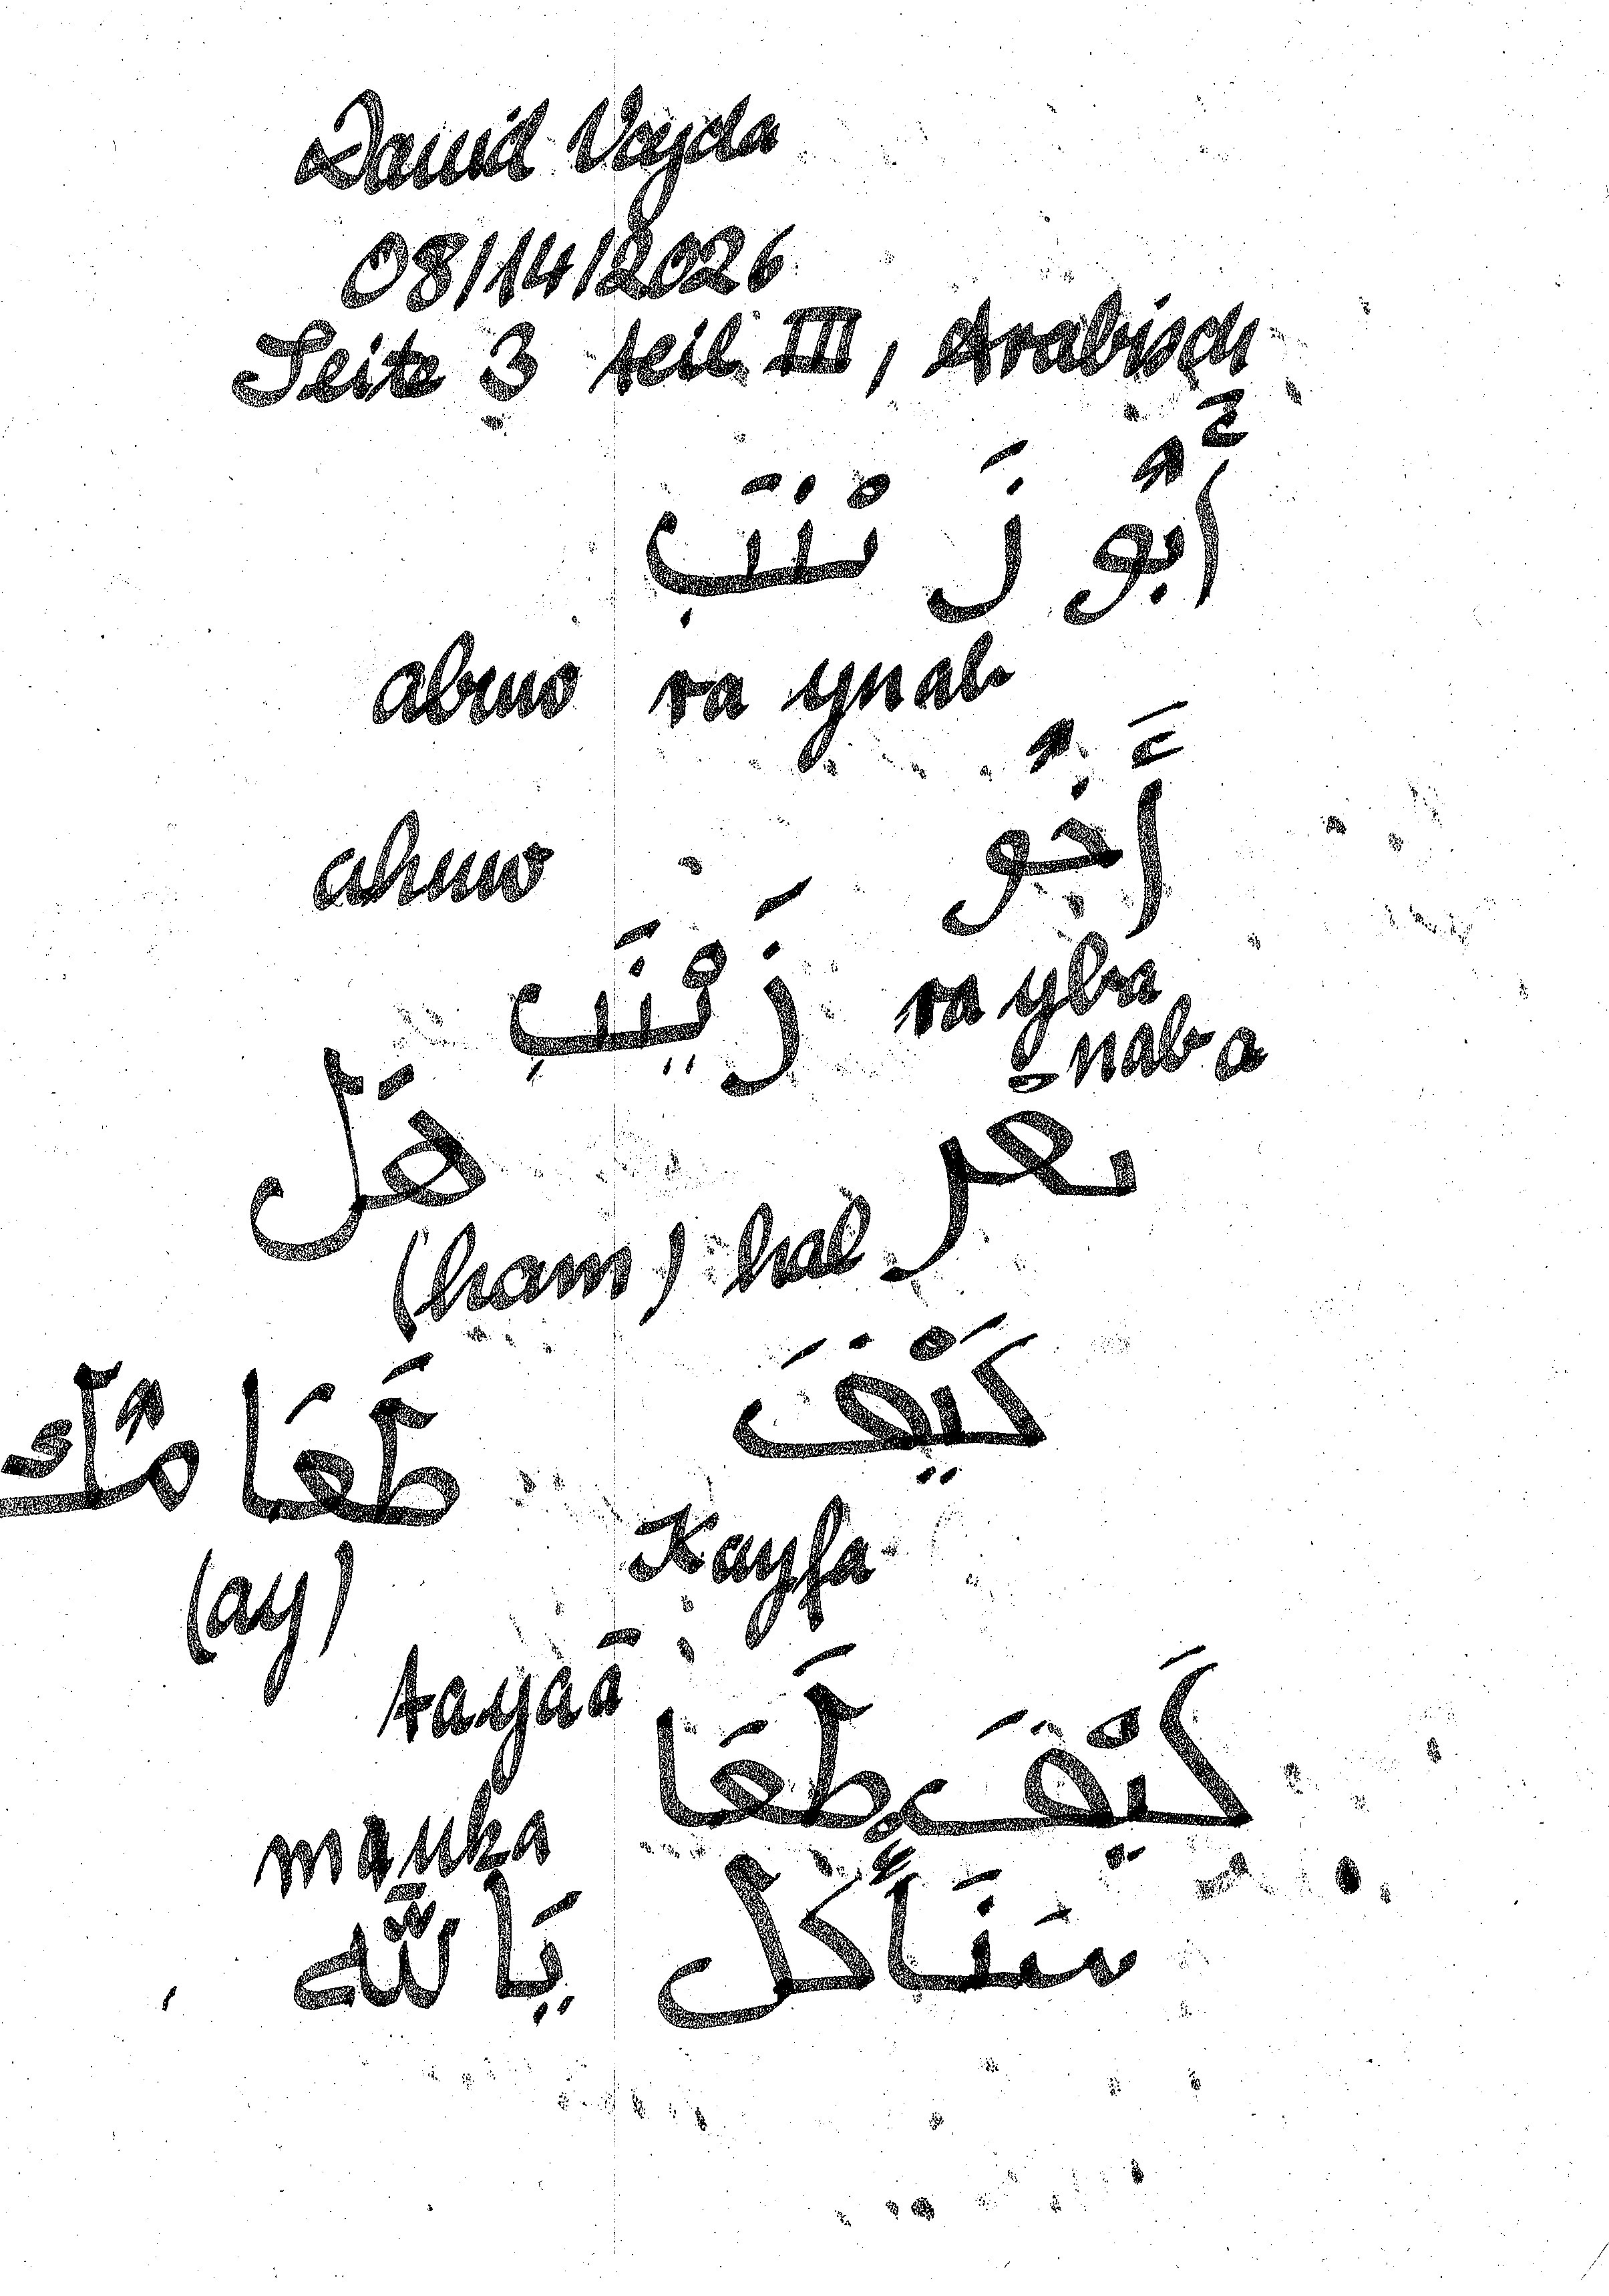 David Vajda
08/14/2026
Seite 3 teil III, Arabisch
أَبُو زَ نْنَب
abuuo ra ynab
أَخُو
ahuuo
زَيْنَب
ra yba
nab a
هَل
(ham) hal
كَيْفَ
طَعَا مُك
Kayfa
(ay)
tayaā
كَيْفَ طَعَا
mauka
سَنَأْكُل يَا للّه